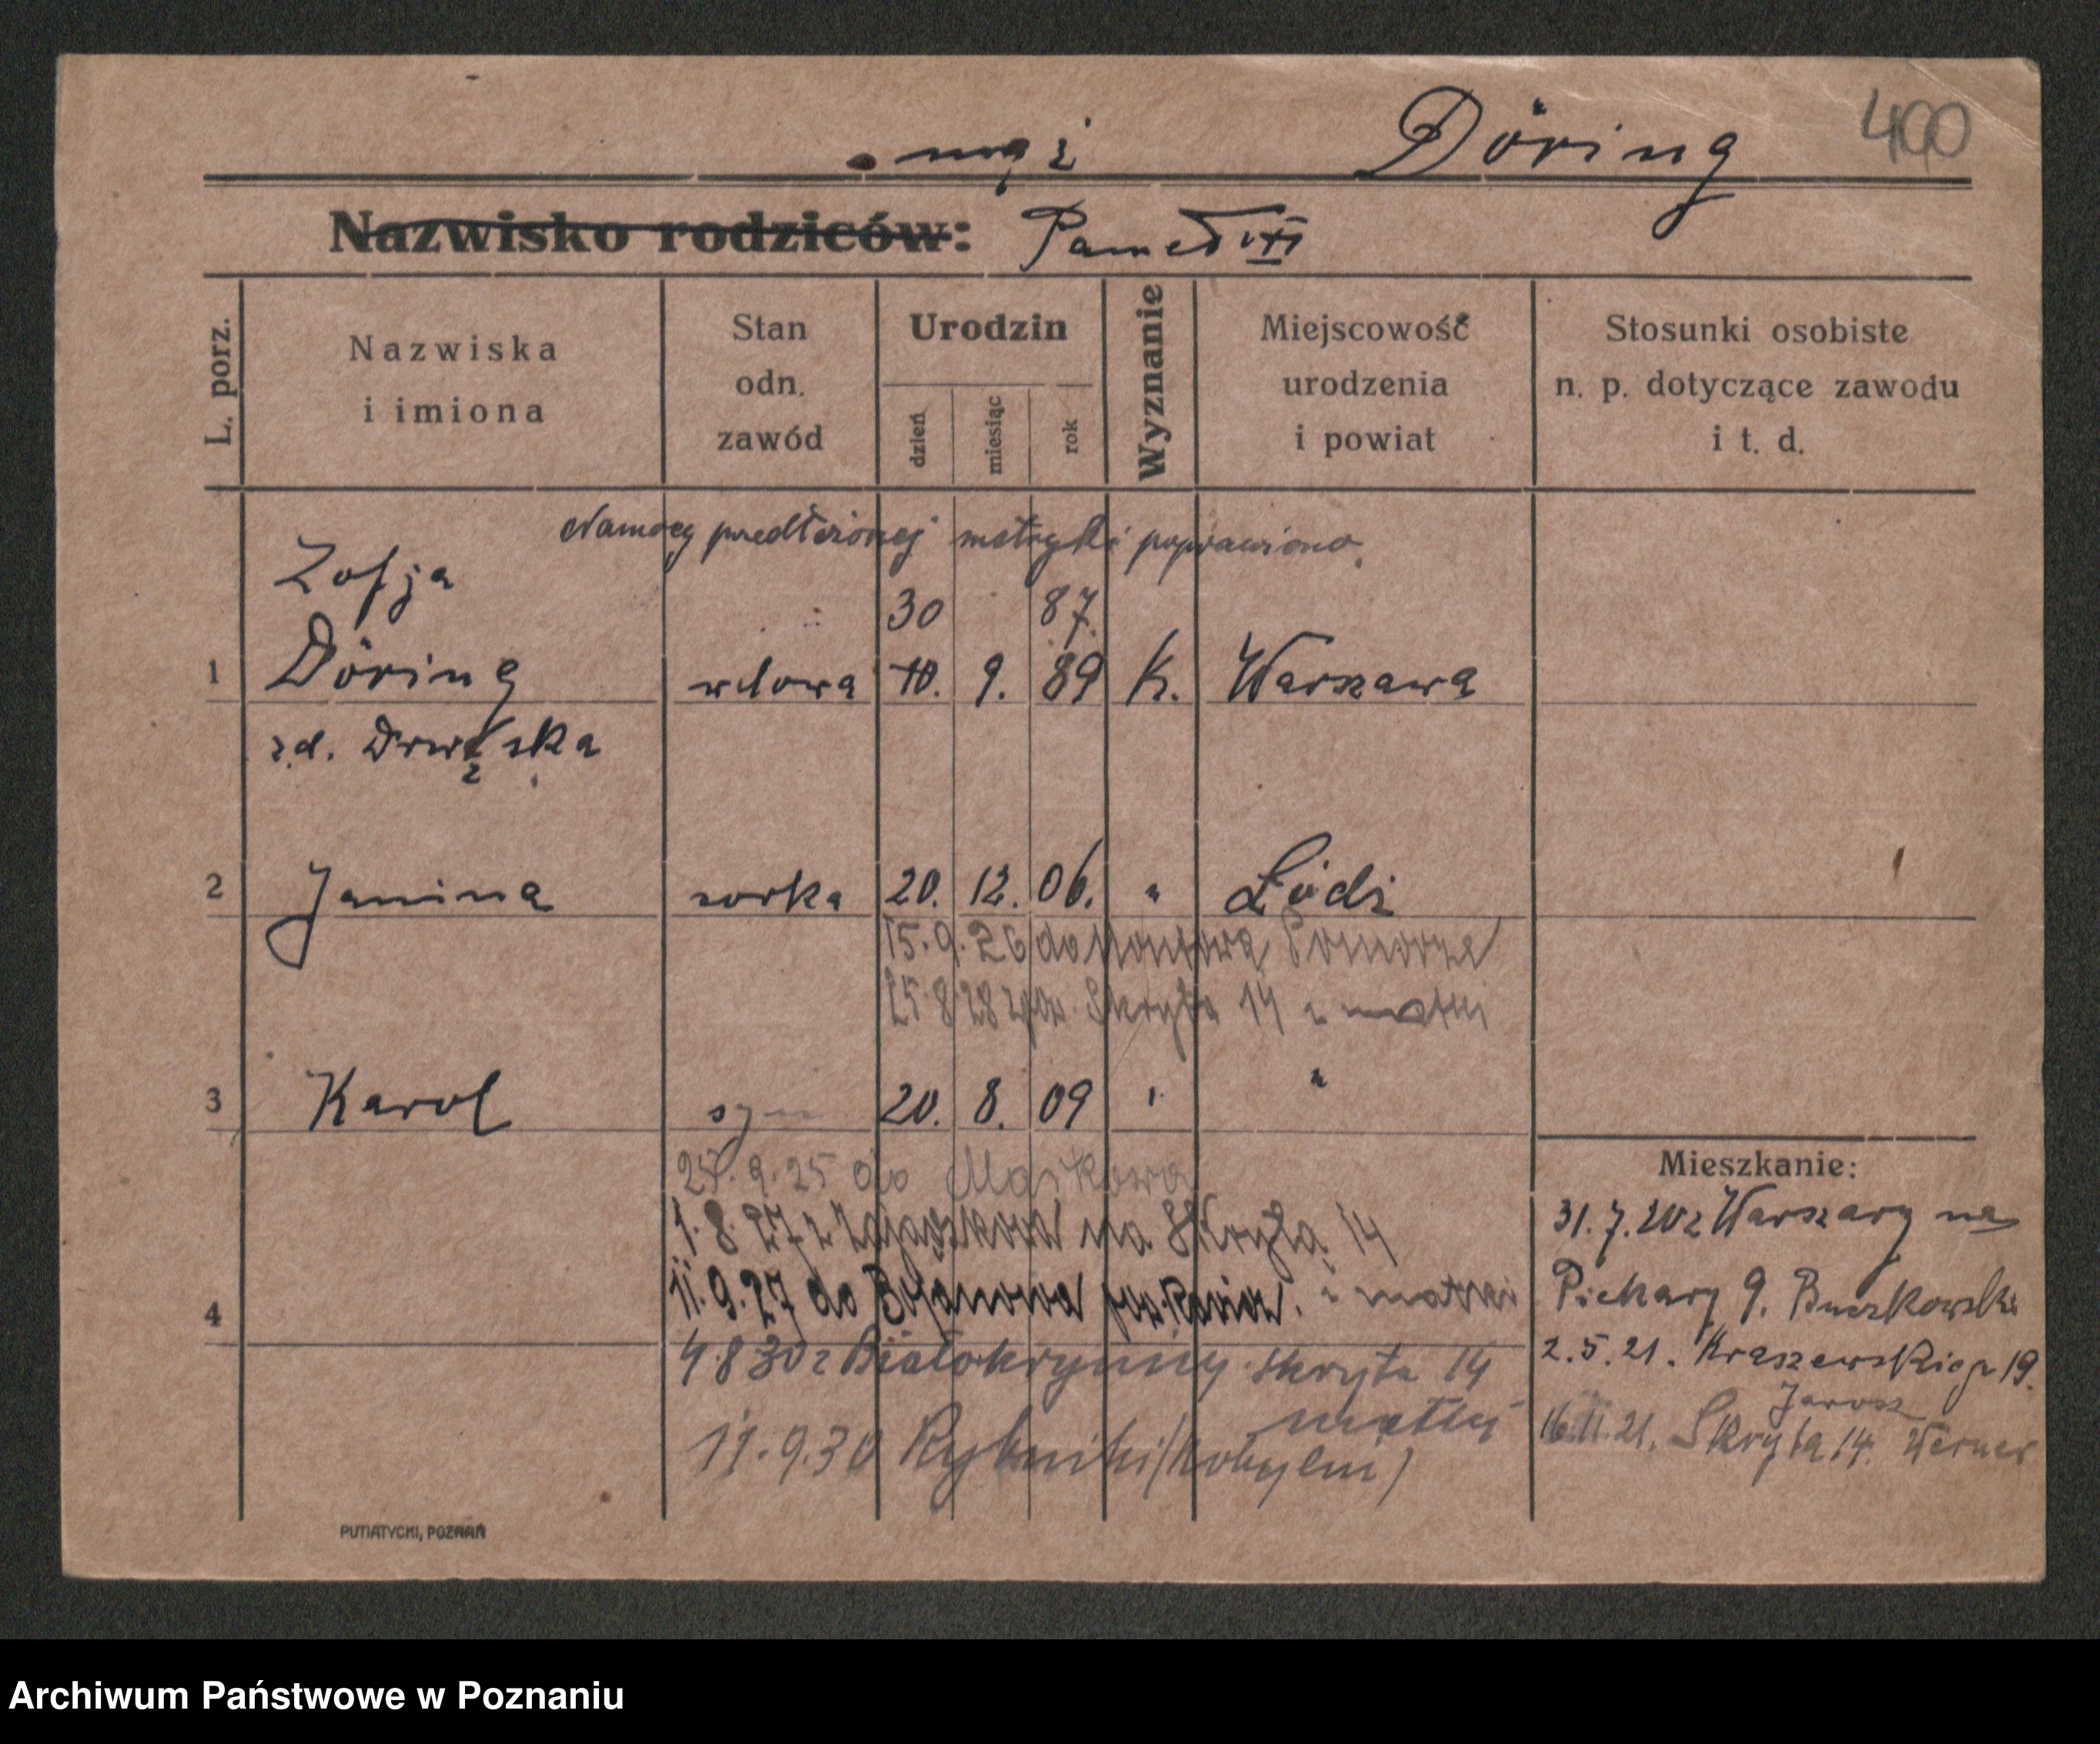 400
mąż Döring
Nazwisko rodziców: Paweł
L. porz.
Nazwiska i imiona
Stan odn. zawód
Urodzin
dzień
miesiąc
rok
Wyznanie
Miejscowość urodzenia i powiat
Stosunki osobiste n. p. dotyczące zawodu i t. d.
Na mocy przedłożonej metryki poprawiono.
Zofja
30 87.
1 Döring wdowa 10. 9. 89 k. Warszawa
2 Janina corka 20. 12. 06. " Łódź
15.9.26 do Pomorze
25.8.28 Skryta 14 z matki
3 Karol syn 20. 8. 09 " "
25.9.25 do
1.8.27 z na Skrytą 14
4 11.9.27 do Bojanowa pow. Rawicz.
4.8 30 z Białokrynicy Skryta 14
matki
11.9.30 Rybniki (Kobylni)
Mieszkanie:
31.7.20 z Warszawy na
Piekary 9.
2.5.21. Kraszewskiego 19.
Jarosz
16.11.21. Skryta 14. Werner
PUTIATYCKI, POZNAŃ
Archiwum Państwowe w Poznaniu